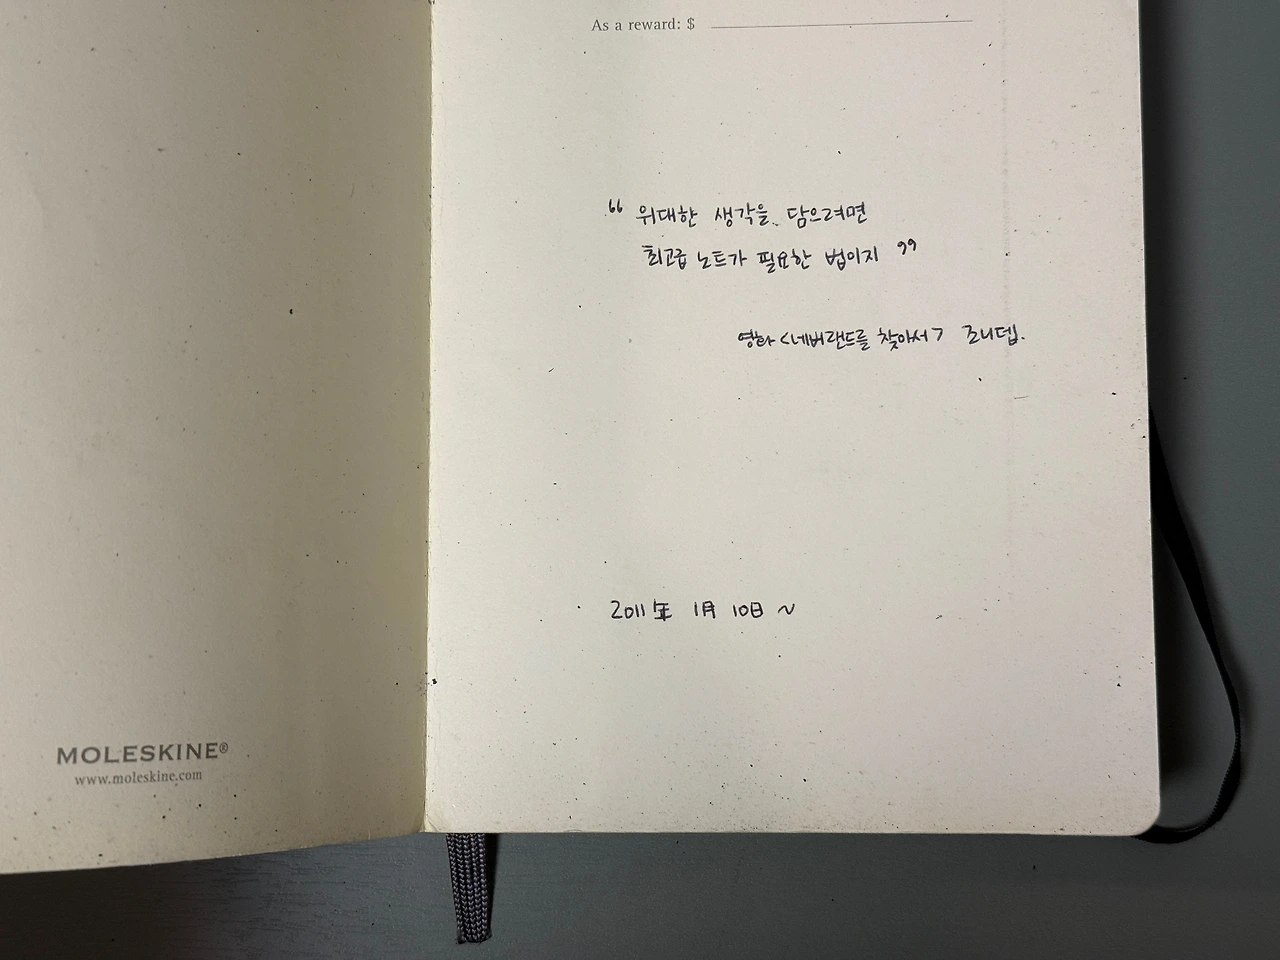 As a reward: $
“ 위대한 생각을 담으려면
최고급 노트가 필요한 법이지 ”
영화 <네버랜드를 찾아서> 조니뎁.
2011年 1月 10日 ~
MOLESKINE®
www.moleskine.com